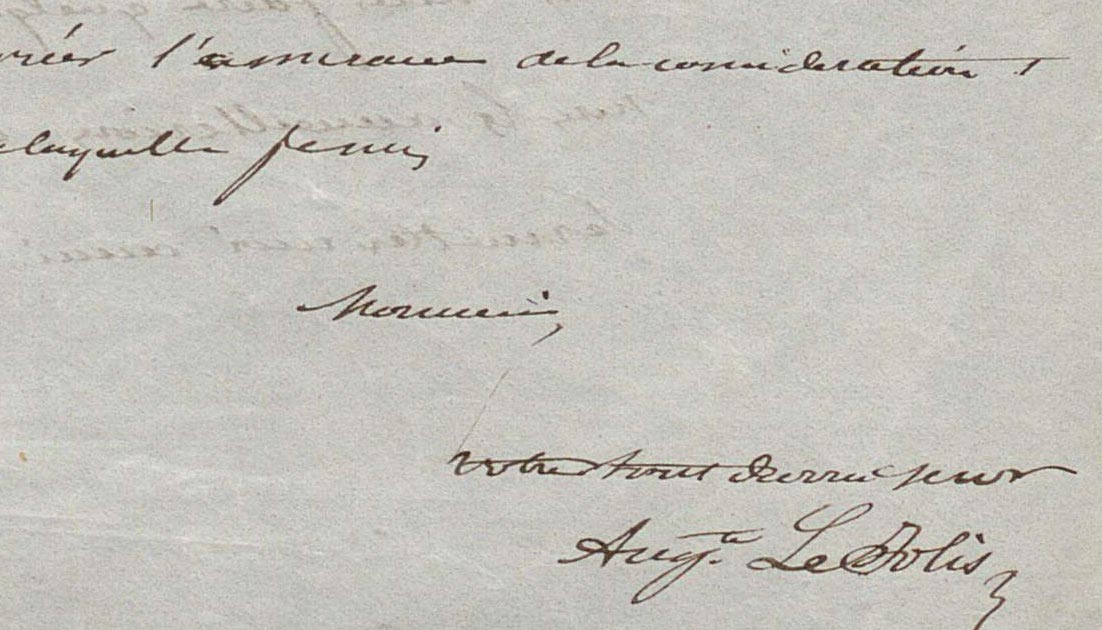 l'assurance de la considération
laquelle je suis
Monsieur,
votre tout dévoué serv
Aug.te Le Jolis